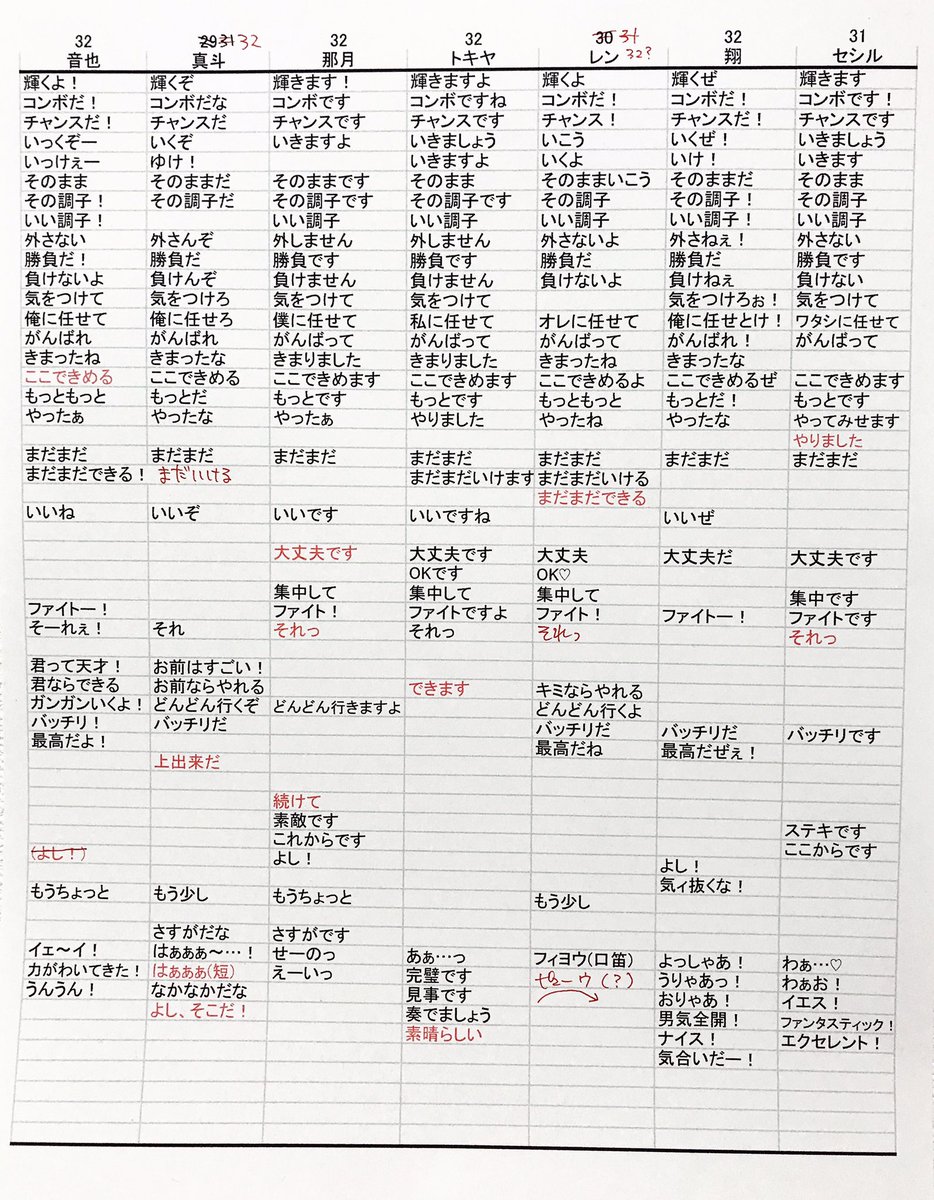 32 29 31 32 32 32 30 31 32? 32 31
音也 真斗 那月 トキヤ レン 翔 セシル
輝くよ！ 輝くぞ 輝きます！ 輝きますよ 輝くよ 輝くぜ 輝きます
コンボだ！ コンボだな コンボです コンボですね コンボだ！ コンボだ！ コンボです！
チャンスだ！ チャンスだ チャンスです チャンスです チャンス！ チャンスだ！ チャンスです
いっくぞー いくぞ いきますよ いきましょう いこう いくぜ！ いきましょう
いっけぇー ゆけ！ いきますよ いくよ いけ！ いきます
そのまま そのままだ そのままです そのまま そのままいこう そのままだ そのまま
その調子！ その調子だ その調子です その調子です その調子 その調子！ その調子
いい調子！ いい調子 いい調子 いい調子 いい調子！ いい調子
外さない 外さんぞ 外しません 外しません 外さないよ 外さねぇ！ 外さない
勝負だ！ 勝負だ 勝負です 勝負です 勝負だ 勝負だ 勝負です
負けないよ 負けんぞ 負けません 負けません 負けないよ 負けねぇ 負けない
気をつけて 気をつけろ 気をつけて 気をつけて 気をつけろぉ！ 気をつけて
俺に任せて 俺に任せろ 僕に任せて 私に任せて オレに任せて 俺に任せとけ！ ワタシに任せて
がんばれ がんばれ がんばって がんばって がんばって がんばれ！ がんばって
きまったね きまったな きまりました きまりました きまったね きまったな
ここできめる ここできめる ここできめます ここできめます ここできめるよ ここできめるぜ ここできめます
もっともっと もっとだ もっとです もっとです もっともっと もっとだ！ もっとです
やったぁ やったな やったぁ やりました やったね やったな やってみせます
やりました
まだまだ まだまだ まだまだ まだまだ まだまだ まだまだ まだまだ
まだまだできる！ まだいける まだまだいけます まだまだいける
まだまだできる
いいね いいぞ いいです いいですね いいぜ
大丈夫です 大丈夫です 大丈夫 大丈夫だ 大丈夫です
OKです OK♡
集中して 集中して 集中して 集中です
ファイトー！ ファイト！ ファイトですよ ファイト！ ファイトー！ ファイトです
そーれぇ！ それ それっ それっ それっ それっ
君って天才！ お前はすごい！
君ならできる お前ならやれる できます キミならやれる
ガンガンいくよ！ どんどん行くぞ どんどん行きますよ どんどん行くよ
バッチリ！ バッチリだ バッチリだ バッチリだ バッチリです
最高だよ！ 最高だね 最高だぜぇ！
上出来だ
続けて
素敵です ステキです
これからです ここからです
(よし！) よし！ よし！
気ィ抜くな！
もうちょっと もう少し もうちょっと もう少し
さすがだな さすがです
イェ～イ！ はぁぁぁ～…！ せーのっ あぁ…っ フィヨウ(口笛) よっしゃあ！ わぁ…♡
力がわいてきた！ はぁぁぁ(短) えーいっ 完璧です ピューウ(？) うりゃあっ！ わぁお！
うんうん！ なかなかだな 見事です おりゃあ！ イエス！
よし、そこだ！ 奏でましょう 男気全開！ ファンタスティック！
素晴らしい ナイス！ エクセレント！
気合いだー！